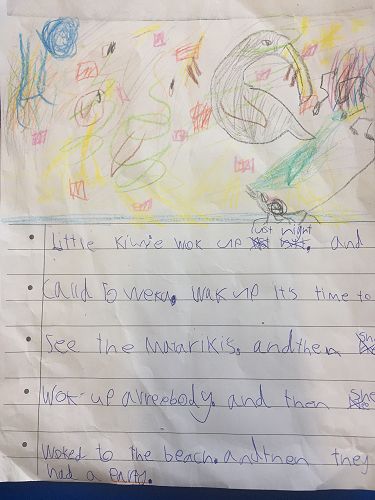 Little Kiwie wok up last night. and
Calld to weka. wak up it's time to
See the Matarikis. andthen she
Wok up avreebody. and then she
Woked to the beach. andthen they
had a party.